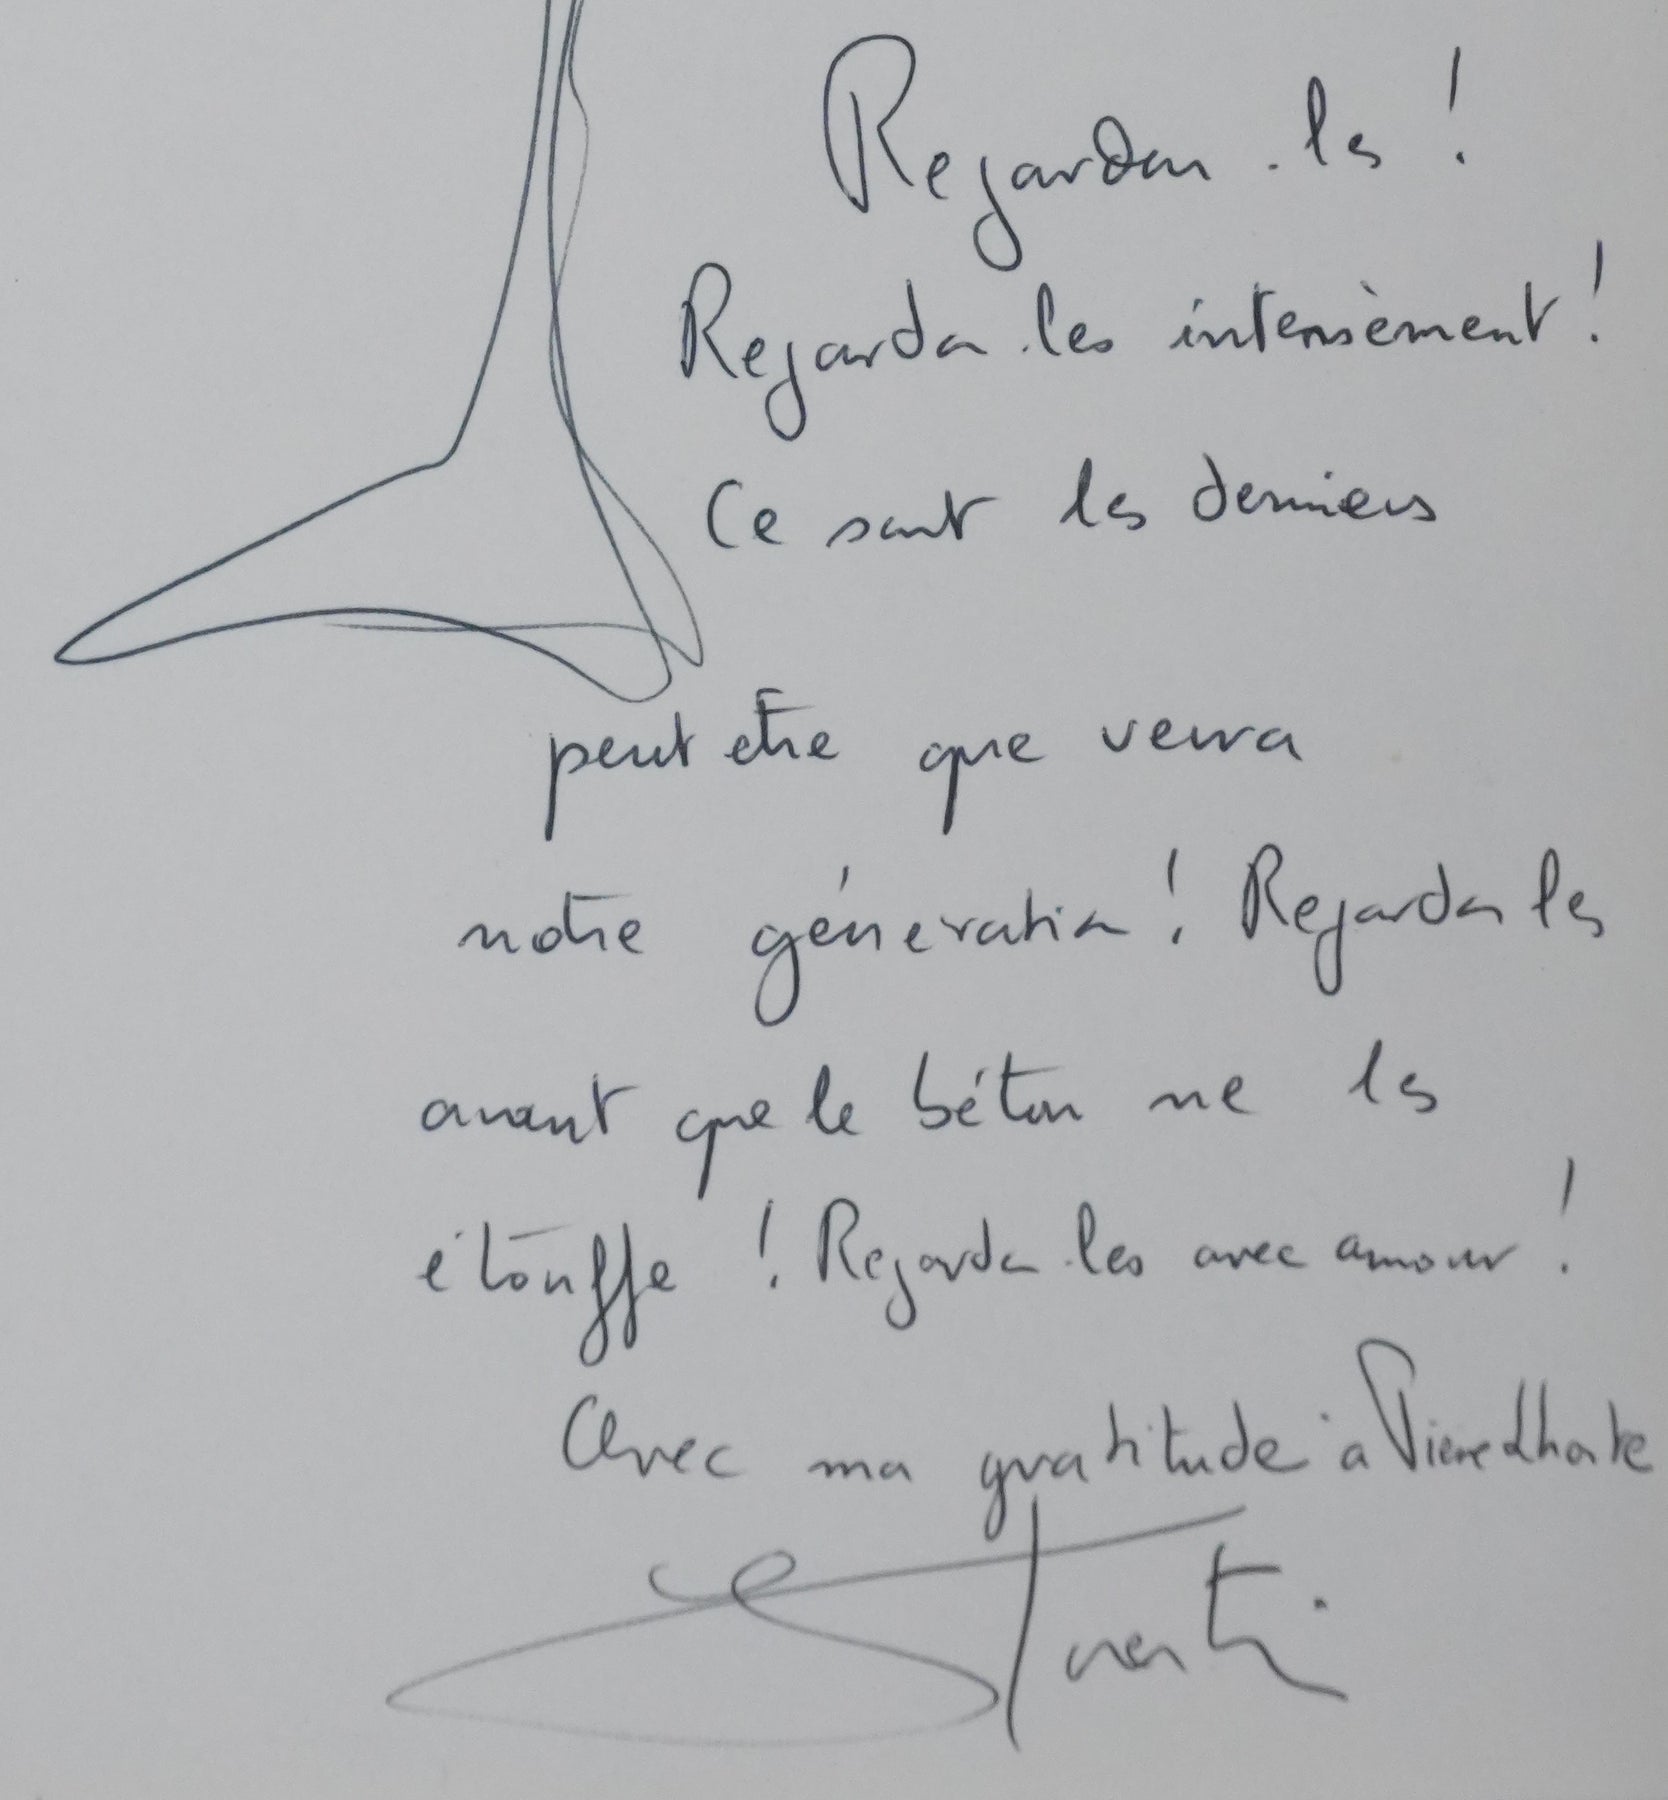 Regardons-les !
Regardons-les intensèment !
Ce sont les derniers
peut etre que verra
notre géneration ! Regardons les
avant que le béton ne les
étouffe ! Regardons-les avec amour !
Avec ma gratitude à Pierre